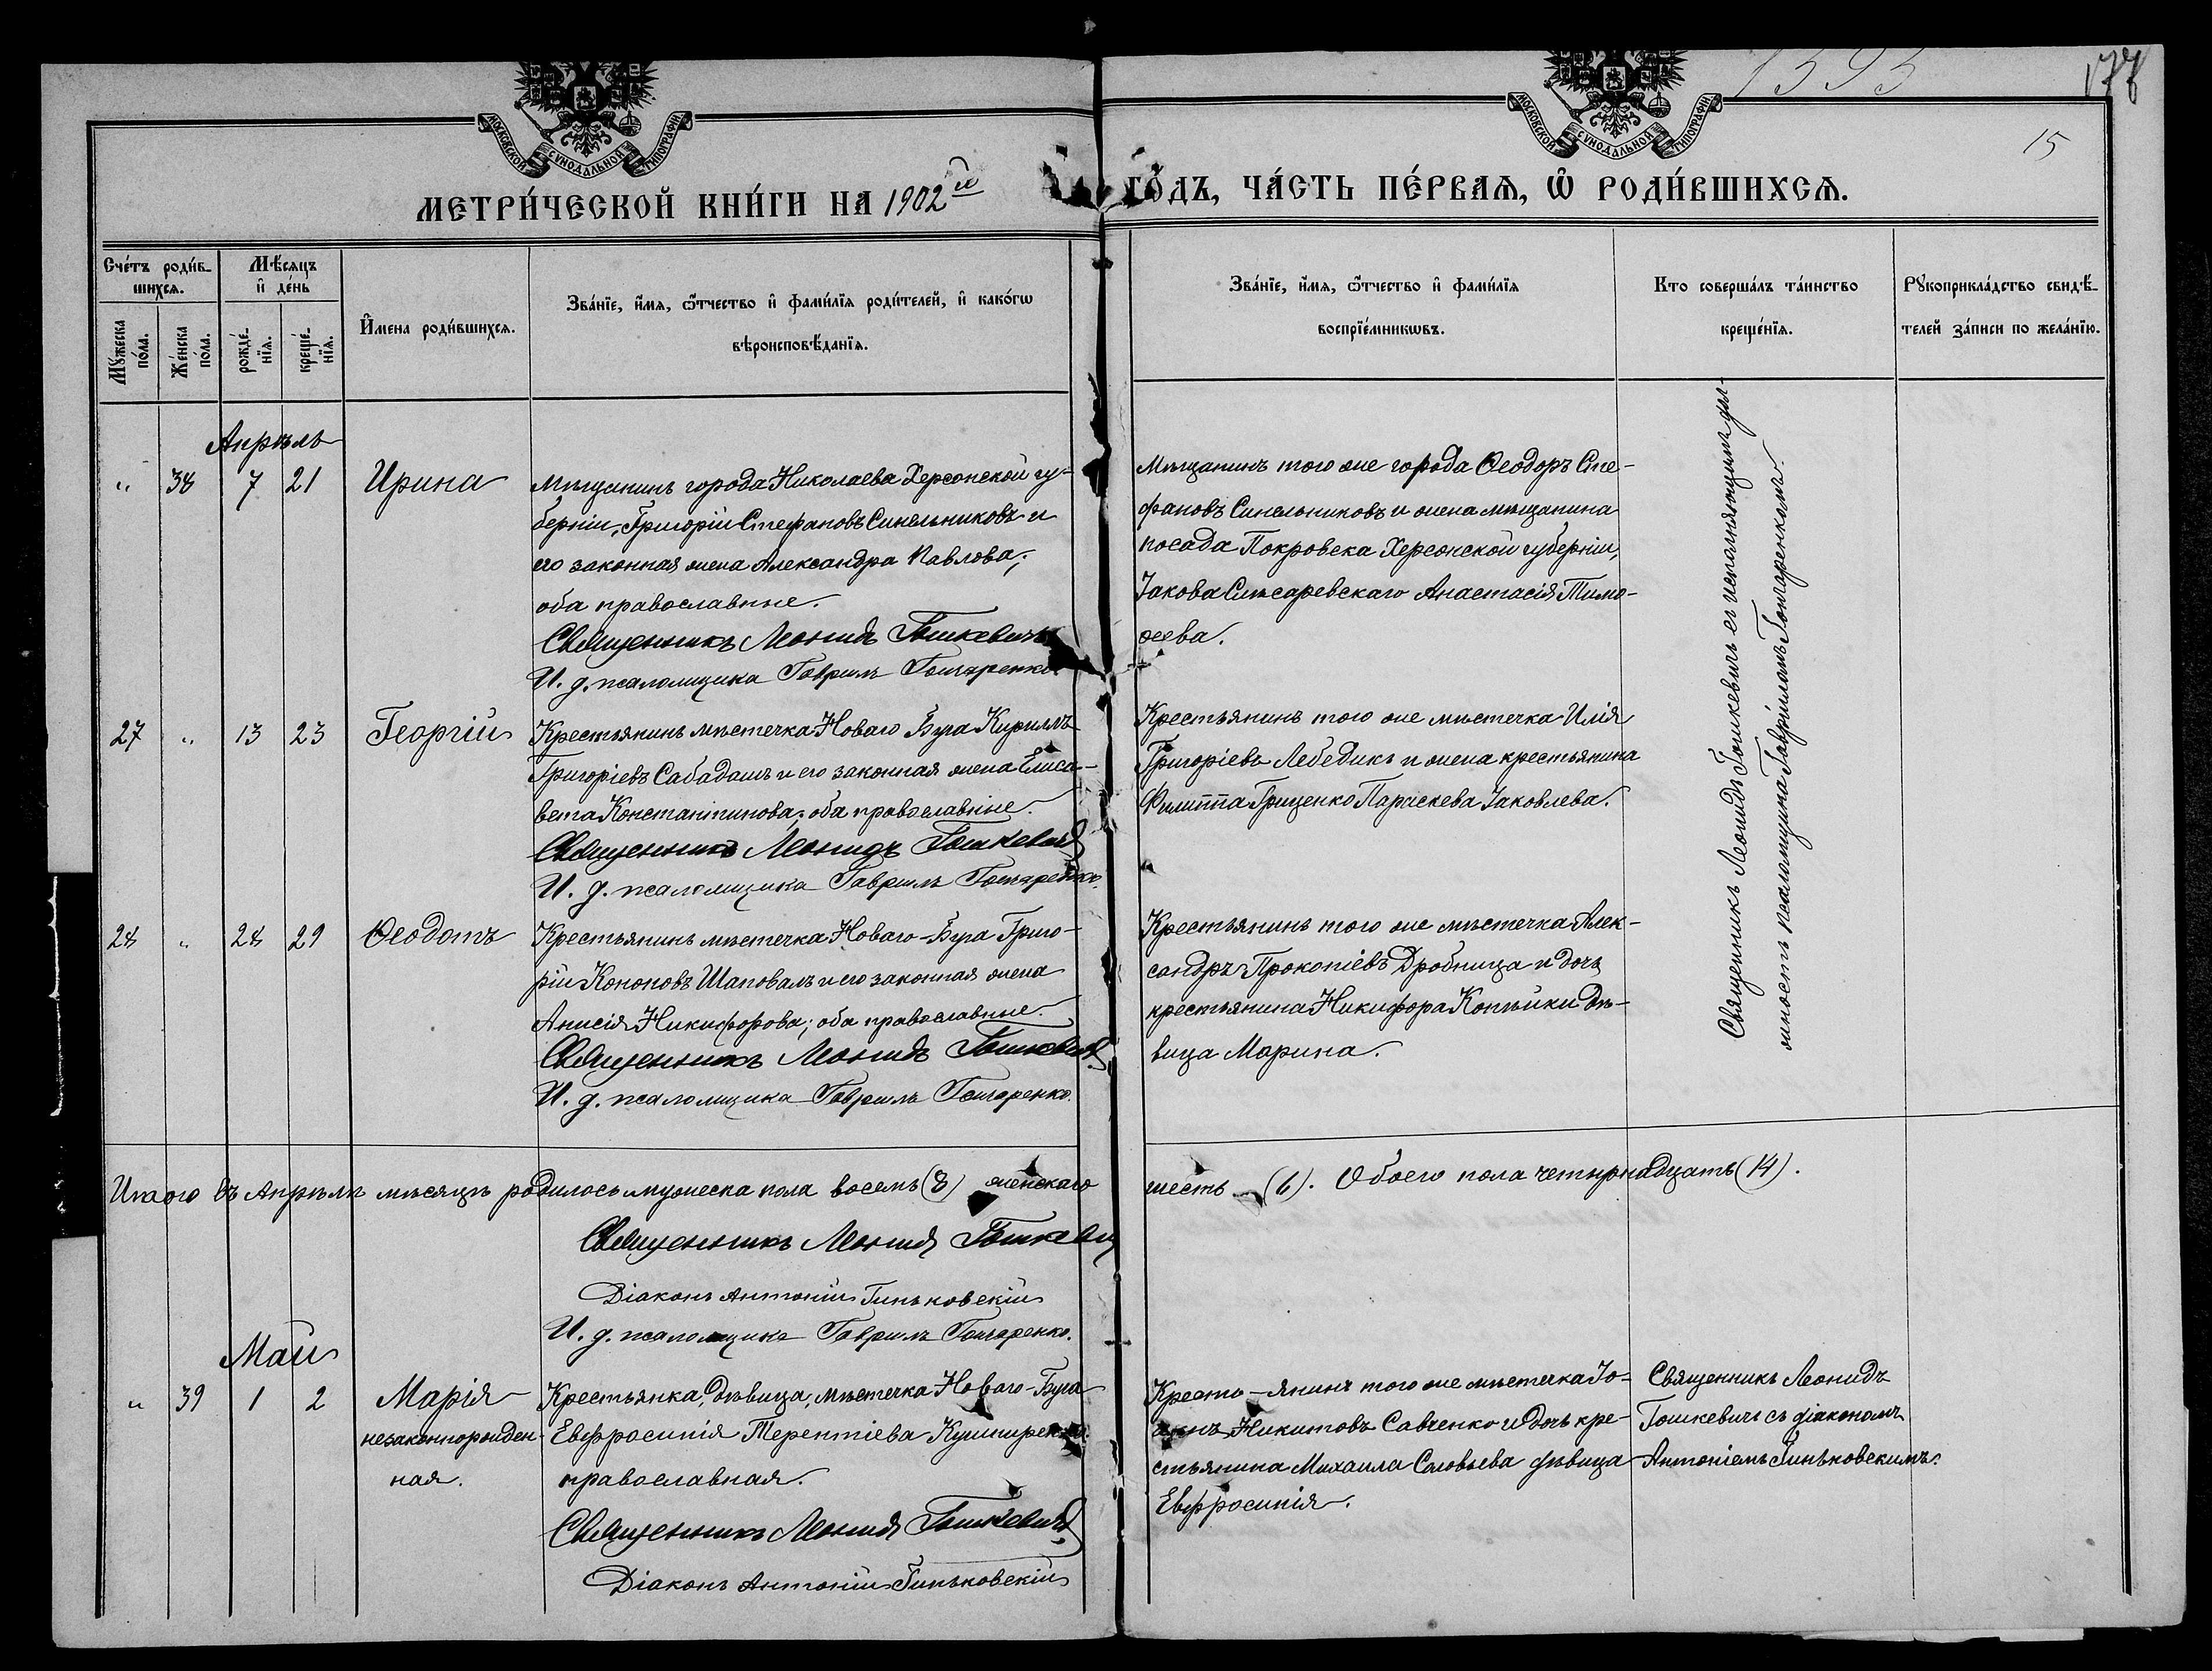 1593
177
15
МОСКОВСКОЙ СѴНОДАЛЬНОЙ ТИПОГРАФІИ
МОСКОВСКОЙ СѴНОДАЛЬНОЙ ТИПОГРАФІИ
МЕТРИ́ЧЕСКОЙ КНИ́ГИ НА 1902й ГО́ДЪ, ЧА́СТЬ ПЕ́РВАѦ, Ѽ РОДИ́ВШИХСѦ.
Сче́тъ роди́в-
шихся.
Мꙋ́жеска
по́ла.
Же́нска
по́ла.
Мѣ́сяцъ
и҆ де́нь
рожде́-
нїя.
креще́-
нїя.
И҆мена роди́вшихся.
Зва́нїе, и҆́мя, ѻ҆́тчество и҆ фами́лїя роди́телей, и҆ како́гѡ
вѣроисповѣ́данїя.
Зва́нїе, и҆́мя, ѻ҆́тчество и҆ фами́лїя
воспрїе́мникѡвъ.
Кто соверша́лъ та́инство
креще́нїя.
Рꙋкоприкла́дство свидѣ́-
телей за́писи по жела́нїю.
Апрѣль
" 38 7 21 Ирина
Мѣщанинъ города Николаева Херсонской гу-
берніи, Григорій Стефановъ Синельниковъ и
его законная жена Александра Павлова;
оба православные.
Священникъ Леонидъ Гошкевичъ
И. д. псаломщика Гавриилъ Гончаренко.
Мѣщанинъ того же города Ѳеодоръ Сте-
фановъ Синельниковъ и жена мѣщанина
посада Покровска Херсонской губерніи,
Іакова Слѣсаревскаго Анастасія Тимо-
ѳеева.
Священникъ Леонидъ Гошкевичъ съ исполняющимъ дол-
жность псаломщика Гавріиломъ Гончаренкомъ.
27 " 13 23 Георгій
Крестьянинъ мѣстечка Новаго Буга Кириллъ
Григоріевъ Сабадашъ и его законная жена Елиса-
вета Константинова; оба православные.
Священникъ Леонидъ Гошкевичъ
И. д. псаломщика Гавриилъ Гончаренко.
Крестьянинъ того же мѣстечка Илія
Григоріевъ Лебедикъ и жена крестьянина
Филиппа Гриценко Параскева Іаковлева.
28 " 28 29 Ѳеодотъ
Крестьянинъ мѣстечка Новаго-Буга Григо-
рій Кононовъ Шаповалъ и его законная жена
Анисія Никифорова; оба православные.
Священникъ Леонидъ Гошкевичъ
И. д. псаломщика Гавриилъ Гончаренко.
Крестьянинъ того же мѣстечка Алек-
сандръ Прокопіевъ Дробница и дочь
крестьянина Никифора Копѣйки дѣ-
вица Марина.
Итого въ Апрѣлѣ мѣсяцѣ родилось мужеска пола восемь (8) женскаго
шесть (6). Обоего пола четырнадцать (14).
Священникъ Леонидъ Гошкевичъ
Діаконъ Антоній Гиньковскій
И. д. псаломщика Гавриилъ Гончаренко.
Май
" 39 1 2 Марія
незаконнорожден-
ная.
Крестьянка, дѣвица, мѣстечка Новаго-Буга
Евфросинія Терентіева Кушниренко
православная.
Священникъ Леонидъ Гошкевичъ
Діаконъ Антоній Гиньковскій
Кресть-янинъ того же мѣстечка Іо-
аннъ Никитовъ Савченко и дочь кре-
стьянина Михаила Соловьева дѣвица
Евфросинія.
Священникъ Леонидъ
Гошкевичъ съ діакономъ
Антоніемъ Гиньковскимъ.